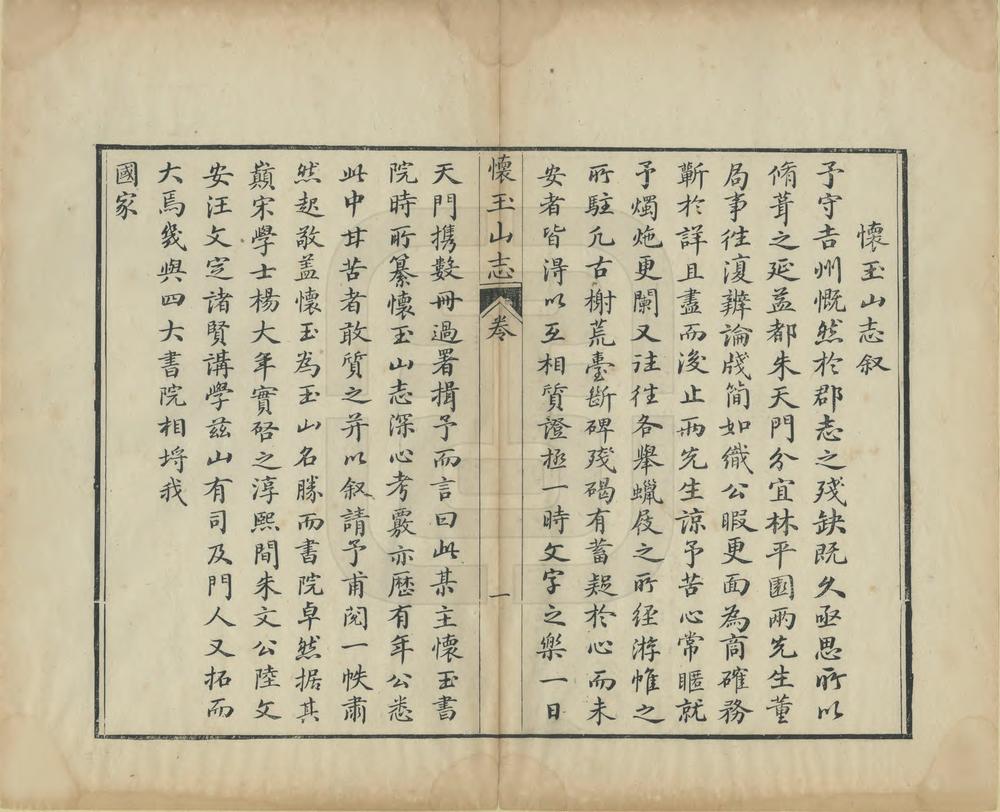 懷玉山志叙
予守吉州慨然於郡志之殘缺既久亟思所以
脩葺之延益都朱天門分宜林平園兩先生董
局事往復辨論牋簡如織公暇更面為商確務
蘄於詳且盡而後止兩先生諒予苦心常暱就
予燭灺更闌又往往各舉蠟屐之所經游帷之
所駐凡古榭荒臺斷碑殘碣有蓄疑於心而未
安者皆得以互相質證極一時文字之樂一日
懷玉山志 卷 一
天門攜數冊過署揖予而言曰此某主懷玉書
院時所纂懷玉山志深心考覈亦歷有年公悉
此中甘苦者敢質之并以叙請予甫閱一帙肅
然起敬盖懷玉為玉山名勝而書院卓然据其
巔宋學士楊大年實啓之淳熙間朱文公陸文
安汪文定諸賢講學茲山有司及門人又拓而
大焉幾與四大書院相埒我
國家